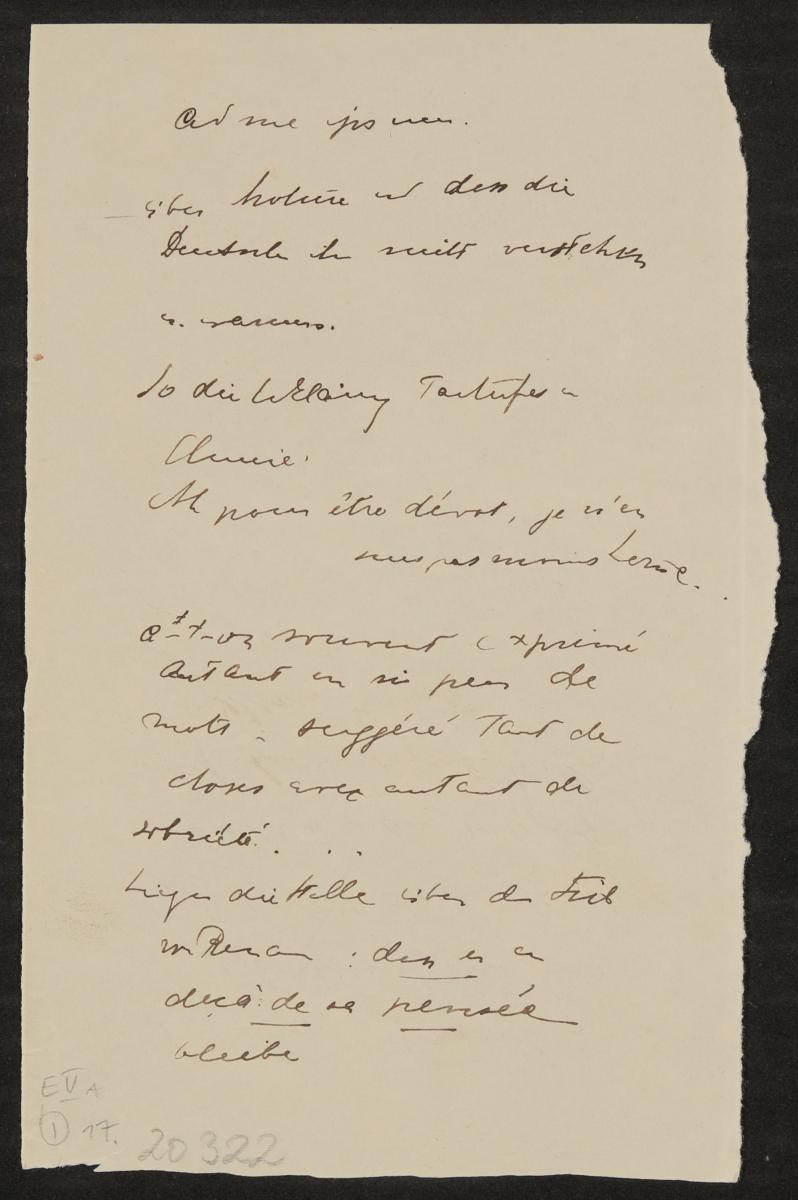 Ad me ipsum.
über Molière und dass die
Deutschen ihn nicht verstehen
u. warum.
So die Tartufes
Elmire.
Ah pour être dévot, je n'en
suis pas moins homme.
a-t-on souvent exprimé
autant en si peu de
mots – suggéré tant de
choses avec autant de
sobriété. . .
die Stelle über den Stil
von Renan : dass er en
deçà de sa pensée
bleibe
E V A
1 17.
20322